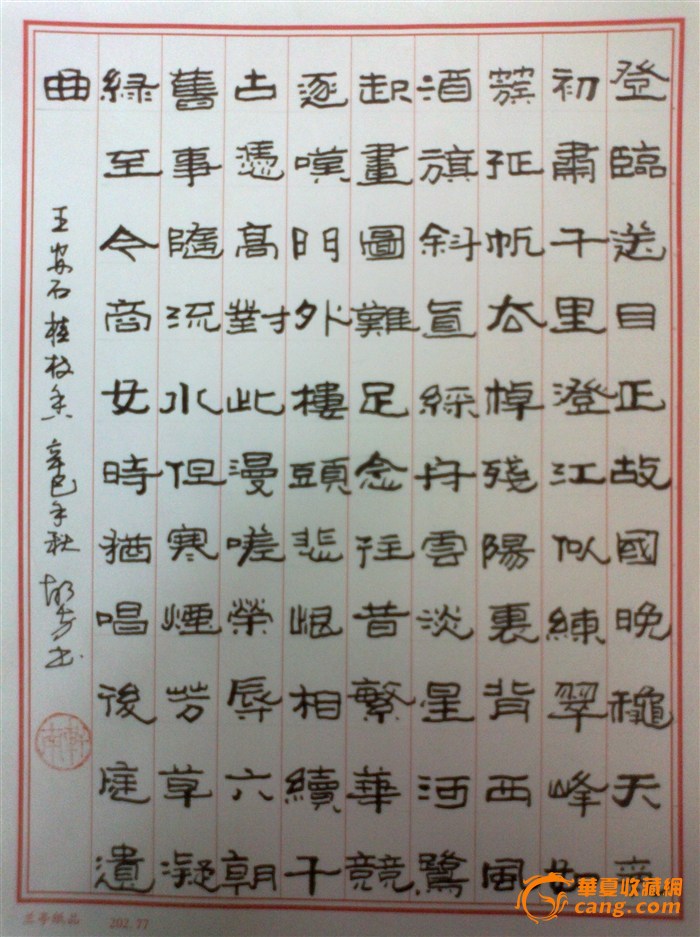 登臨送目正故國晚龝天
初肅千里澄江似練翠峰如
簇征帆去棹殘陽裏背西風
酒旗斜直綵舟雲淡星河鷺
起畫圖難足念往昔繁華競
逐嘆門外樓頭悲恨相續千
古憑高對此漫嗟榮辱六朝
舊事隨流水但寒煙芳草凝
緑至今商女時猶唱後庭遺
曲
王安石桂枝香 辛巳年秋
202.77
華夏收藏網
cang.com